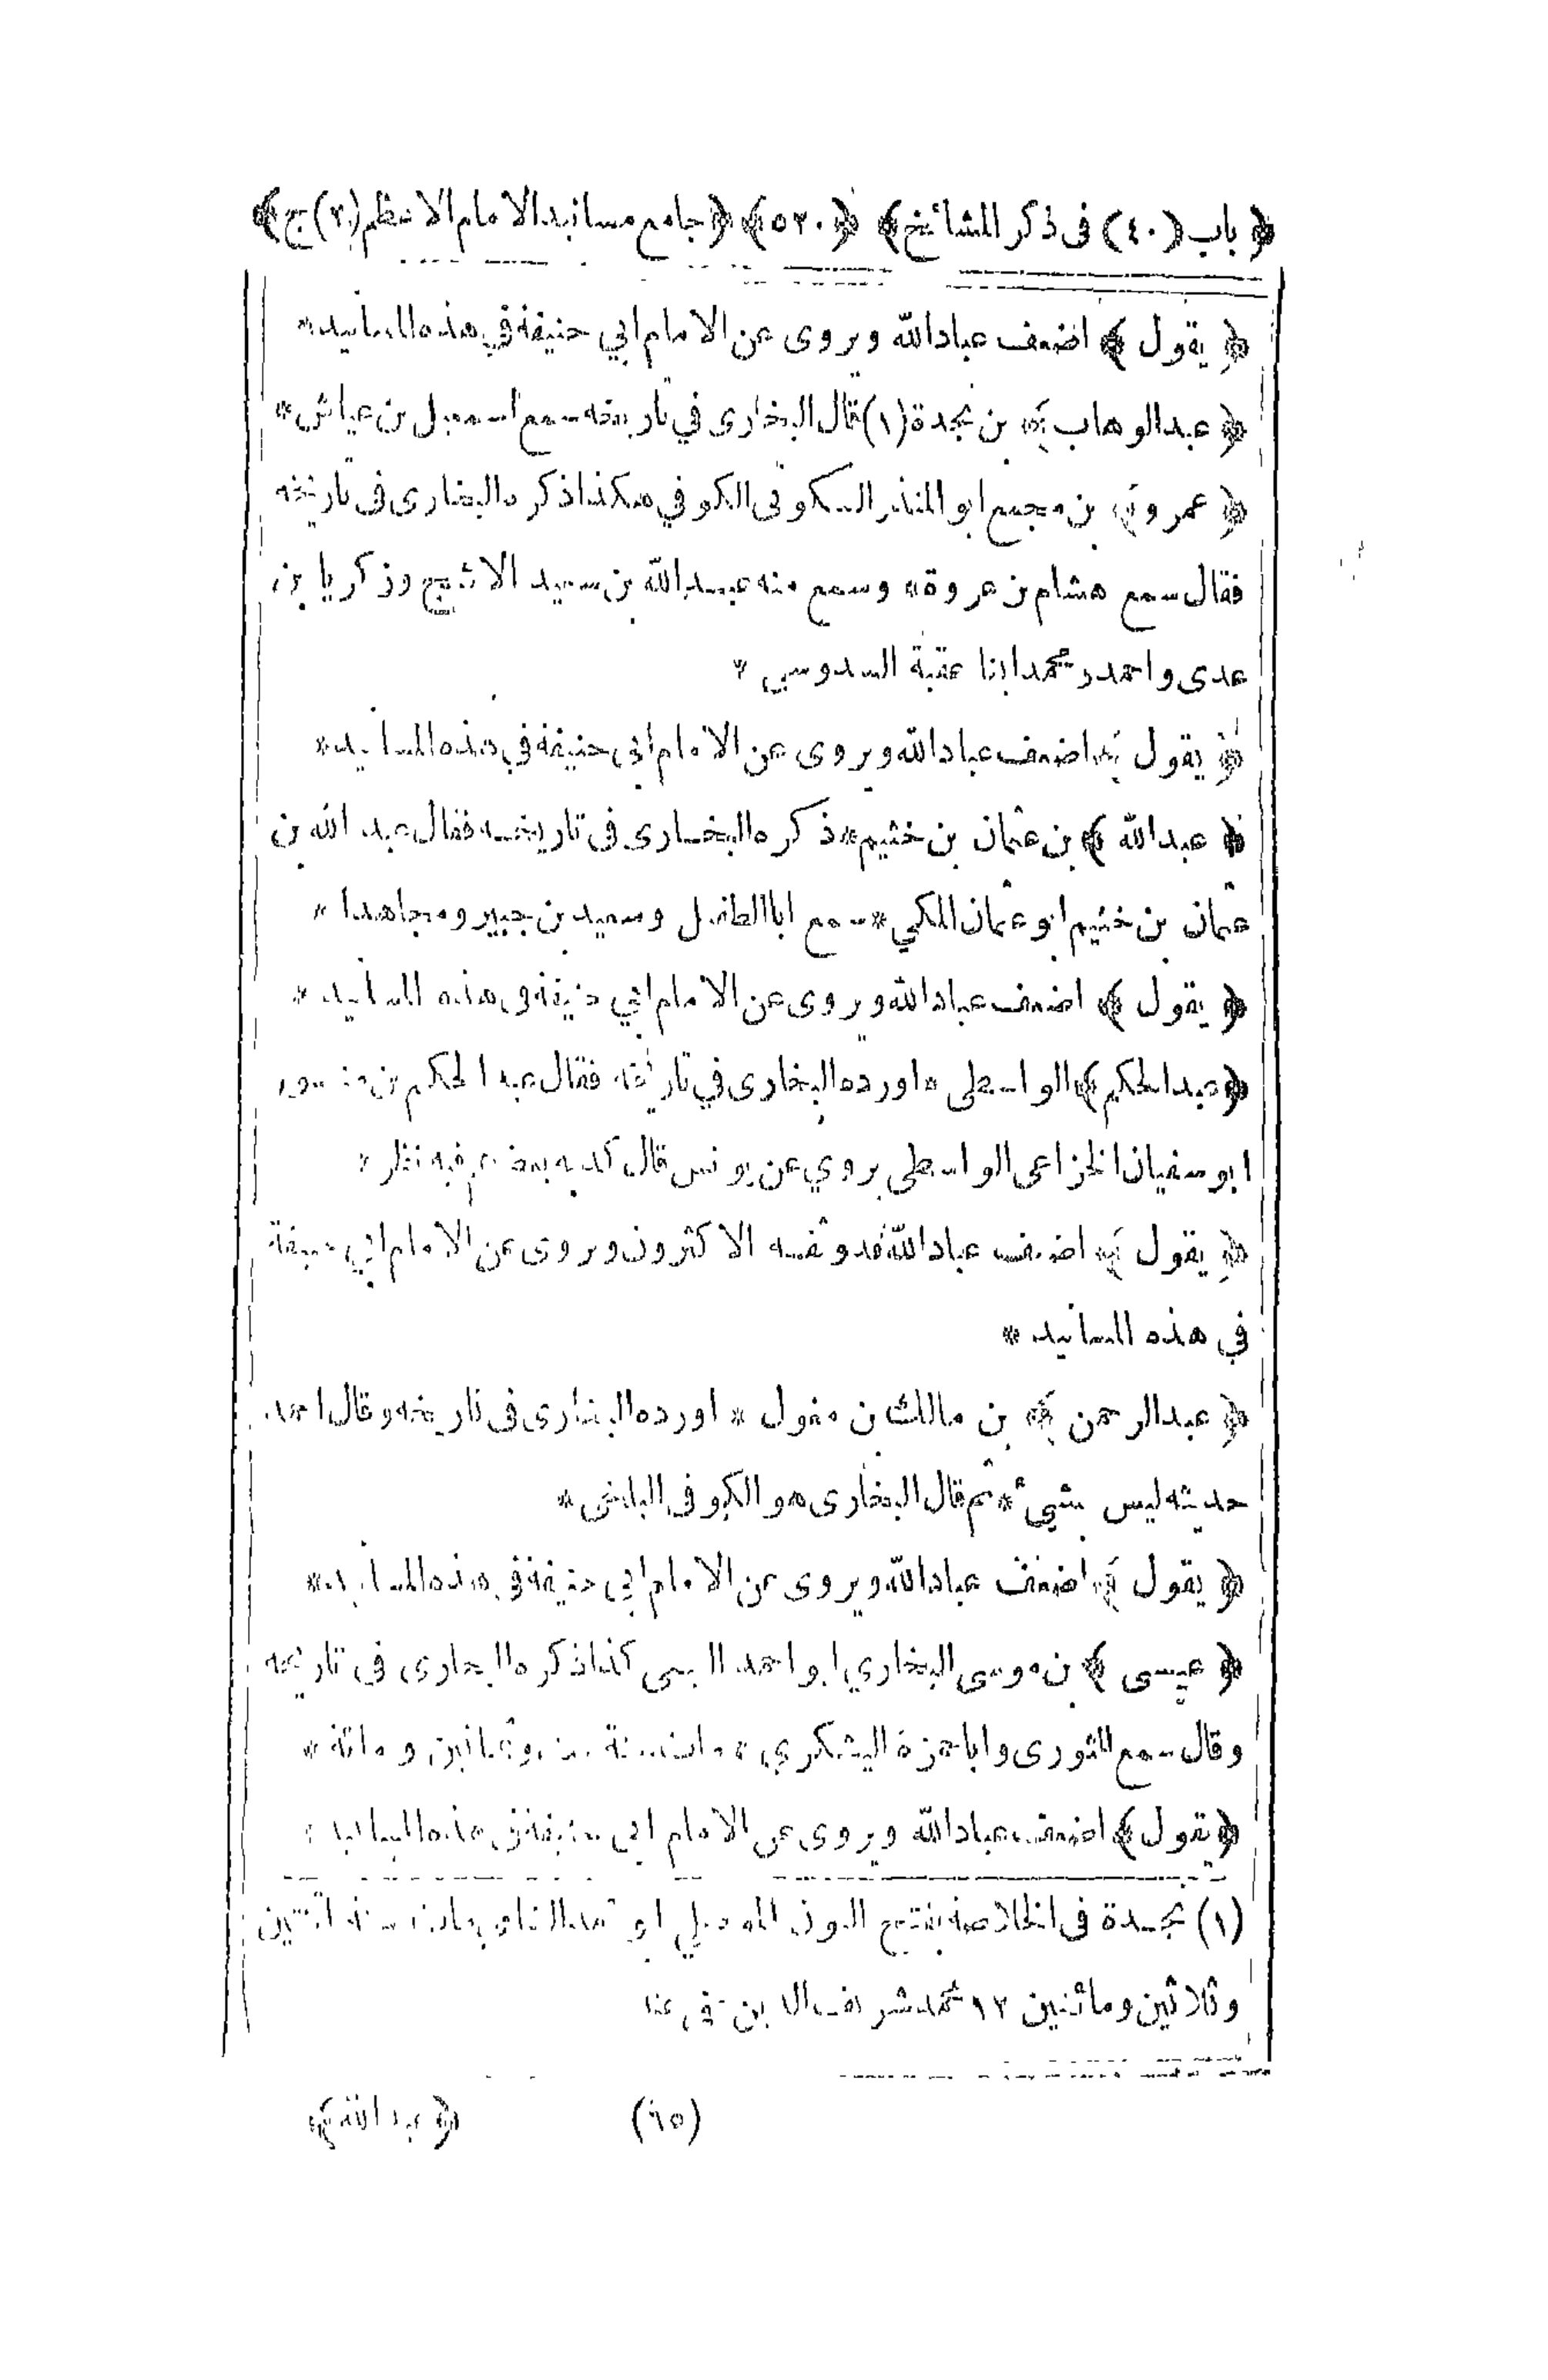 ﴿ باب (٤٠) فى ذكر المشائخ ﴾ ﴿ ٥٢٠ ﴾ ﴿ جامع مسانيد الامام الاعظم (٢) ج ﴾
﴿ يقول ﴾ اضعف عباد الله ويروى عن الامام ابي حنيفة في هذه المسانيد *
﴿ عبد الوهاب ﴾ بن نجدة (١) قال البخارى في تاريخه سمع اسمعيل بن عياش *
﴿ عمرو ﴾ بن مجمع ابو المنذر السكونى الكوفي هكذا ذكره البخارى فى تاريخه
فقال سمع هشام بن عروة * وسمع منه عبد الله بن سعيد الاشج وزكريا بن
عدى واحمد ومحمد ابنا عقبة السدوسي *
﴿ يقول ﴾ اضعف عباد الله ويروى عن الامام ابى حنيفة في هذه المسانيد *
﴿ عبد الله ﴾ بن عثمان بن خثيم * ذكره البخارى فى تاريخه فقال عبد الله بن
عثمان بن خثيم ابو عثمان المكي * سمع ابا الطفيل وسعيد بن جبير ومجاهدا *
﴿ يقول ﴾ اضعف عباد الله ويروى عن الامام ابي حنيفة في هذه المسانيد *
﴿ عبد الحكيم ﴾ الواسطى * اورده البخارى في تاريخه فقال عبد الحكيم بن منصور
ابو سفيان الخزاعى الواسطى يروي عن يونس قال كذبه بعضهم فيه نظر *
﴿ يقول ﴾ اضعف عباد الله قد وثقه الاكثرون ويروى عن الامام ابي حنيفة
في هذه المسانيد *
﴿ عبد الرحمن ﴾ بن مالك بن مغول * اورده البخارى فى تاريخه وقال احمد
حديثه ليس بشيئ * ثم قال البخارى هو الكوفى البلخى *
﴿ يقول ﴾ اضعف عباد الله ويروى عن الامام ابي حنيفة في هذه المسانيد *
﴿ عيسى ﴾ بن موسى البخاري ابو احمد كذا ذكره البخارى فى تاريخه
وقال سمع الثورى وابا حمزة اليشكري * مات سنة وثمانين ومائة *
﴿ يقول ﴾ اضعف عباد الله ويروى عن الامام ابى حنيفة فى هذه المسانيد *
(١) نجدة فى الخلاصة بفتح النون سنة اثنتين
وثلاثين ومائتين ١٢ محمد شريف الدين عنه
(٦٥) ﴿ عبد الله ﴾